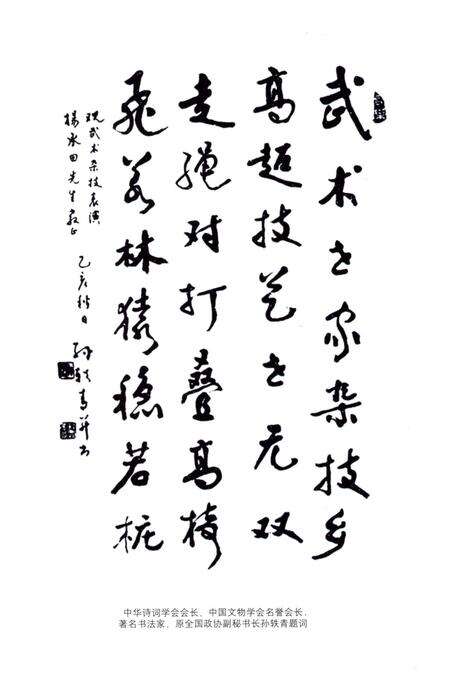 武术世家杂技乡
高超技艺世无双
走绳对打叠高椅
飞若林猿稳若桩
观武术杂技表演
楊 田先生教正
乙亥秋日 孙轶青并书
中华诗词学会会长、中国文物学会名誉会长、
著名书法家、原全国政协副秘书长孙轶青题词